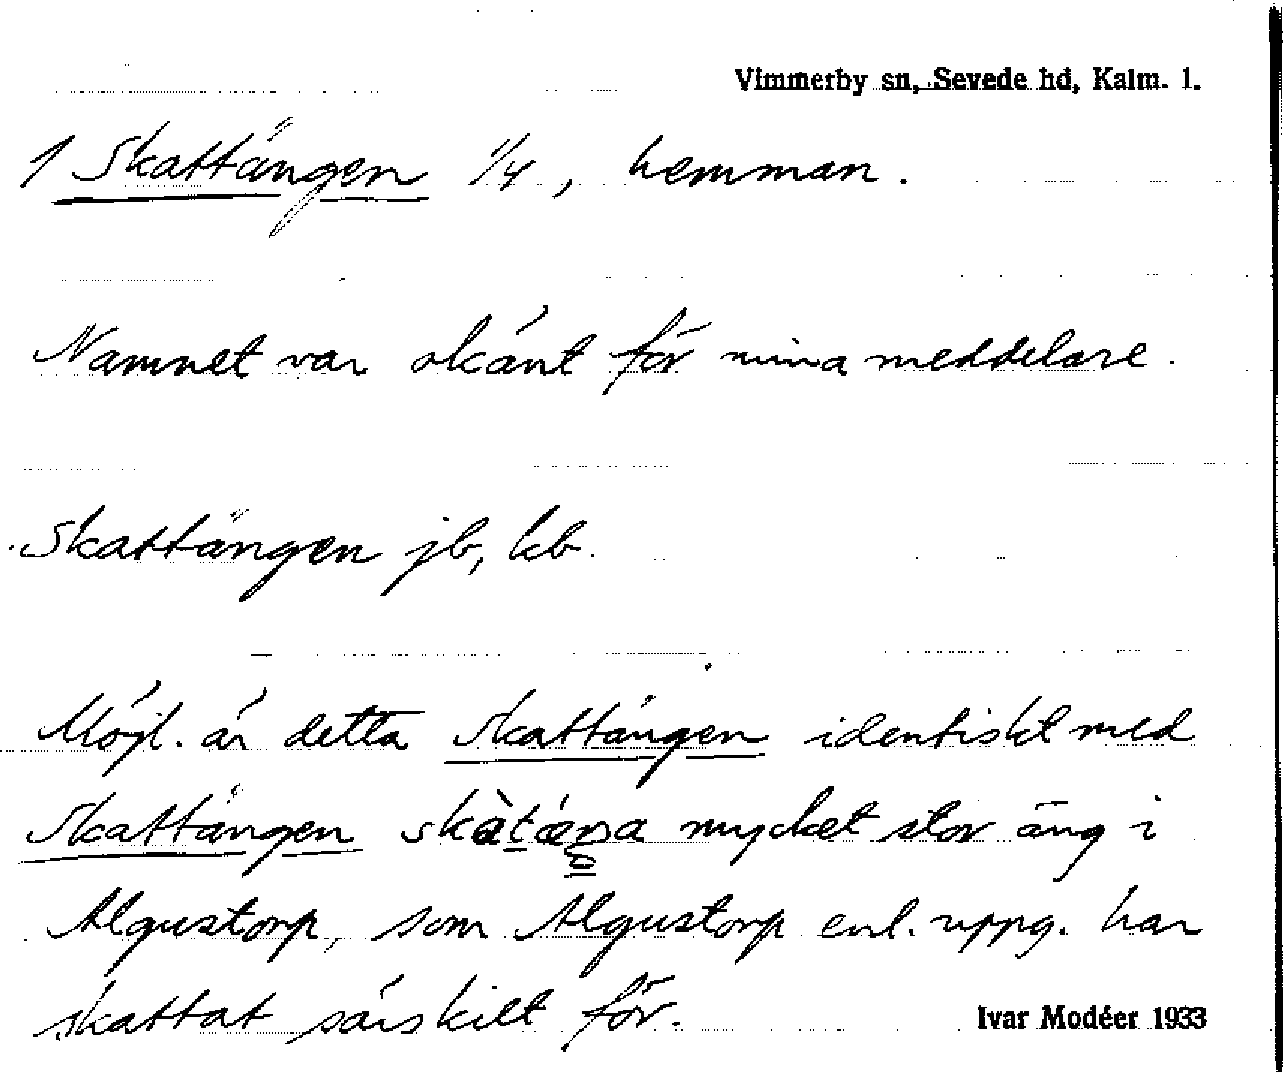 Vimmerby sn, Sevede hd, Kalm. l.
1 Skattängen 1/4, hemman.
Namnet var okänt för mina meddelare.
Skattängen jb, kb.
Möjl. är detta Skattängen identiskt med
Skattängen mycket stor äng i
Algustorp, som Algustorp enl. uppg. har
skattat särskilt för.
Ivar Modéer 1933